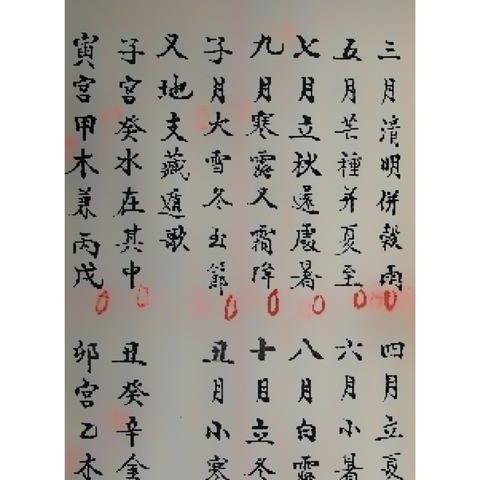 三月清明併穀雨 四月立夏
五月芒種并夏至 六月小暑
七月立秋還處暑 八月白露
九月寒露又霜降 十月立冬
子月大雪冬至節 丑月小寒
又地支藏遁歌
子宮癸水在其中 丑癸辛金
寅宮甲木兼丙戊 卯宮乙木